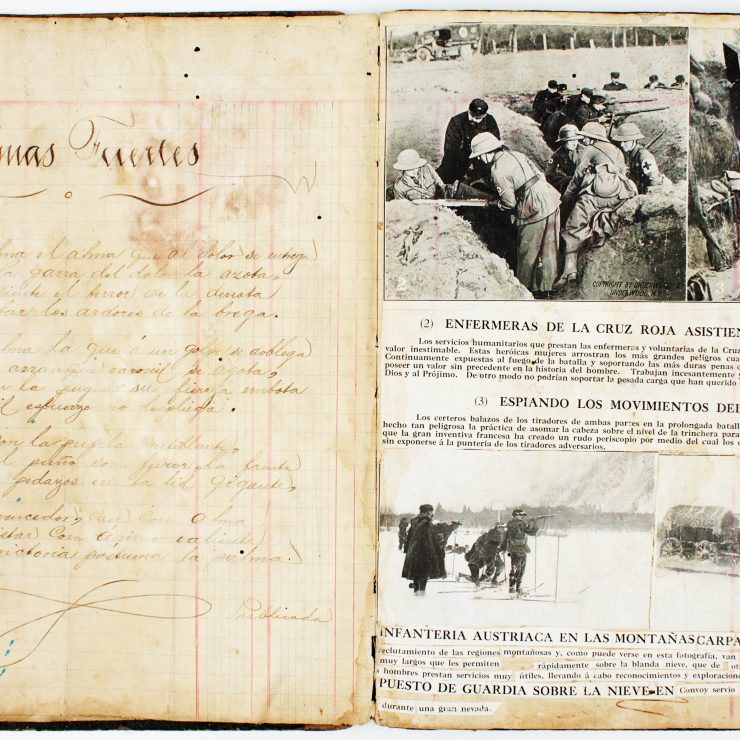 mas Fuertes
lma el alma que al dolor se entrega
garra del dolor la azota,
siente el terror de la derrota
los ardores de la brega.
lma la que á un golpe se doblega
su fiereza embota
esfuerzo no despliega.
con la pupila
el puño con furor, la frente
pedazos en la lid gigante,
vencedor, con alma
con ánimo valiente
victoria postuma la palma.
Publicada
2
3
COPYRIGHT BY UNDERWOOD &
UNDERWOOD, N.Y.
(2) ENFERMERAS DE LA CRUZ ROJA ASISTIEN
Los servicios humanitarios que prestan las enfermeras y voluntarias de la Cruz
valor inestimable. Estas heróicas mujeres arrostran los más grandes peligros cua
Continuamente expuestas al fuego de la batalla y soportando las más duras penas
poseer un valor sin precedente en la historia del hombre. Trabajan incesantemente y
Dios y al Prójimo. De otro modo no podrían soportar la pesada carga que han querido
(3) ESPIANDO LOS MOVIMIENTOS DEL
Los certeros balazos de los tiradores de ambas partes en la prolongada batall
hecho tan peligrosa la práctica de asomar la cabeza sobre el nivel de la trinchera para
que la gran inventiva francesa ha creado un rudo periscopio por medio del cual los
sin exponerse á la puntería de los tiradores adversarios.
INFANTERIA AUSTRIACA EN LAS MONTAÑAS CARPA
reclutamiento de las regiones montañosas y, como puede verse en esta fotografía, van
muy largos que les permiten rápidamente sobre la blanda nieve, que de
s hombres prestan servicios muy útiles, llevando á cabo reconocimientos y exploracione
PUESTO DE GUARDIA SOBRE LA NIEVE EN Convoy servio
durante una gran nevada.